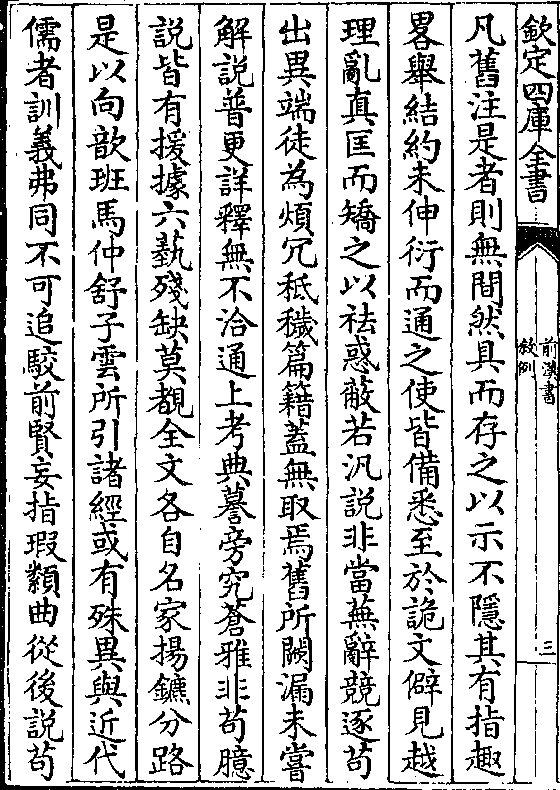 欽定四庫全書
前漢書
敘例
三
凡舊注是者則無間然具而存之以示不隱其有指趣
畧舉結約未伸衍而通之使皆備悉至於詭文僻見越
理亂真匡而矯之以袪惑蔽若汎說非當蕪辭競逐苟
出異端徒為煩冗秪穢篇籍蓋無取焉舊所闕漏未嘗
解説普更詳釋無不洽通上考典謩旁究蒼雅非苟臆
説皆有援據六藝殘缺莫覩全文各自名家揚鑣分路
是以向歆班馬仲舒子雲所引諸經或有殊異與近代
儒者訓義弗同不可追駮前賢妄指瑕纇曲從後説苟